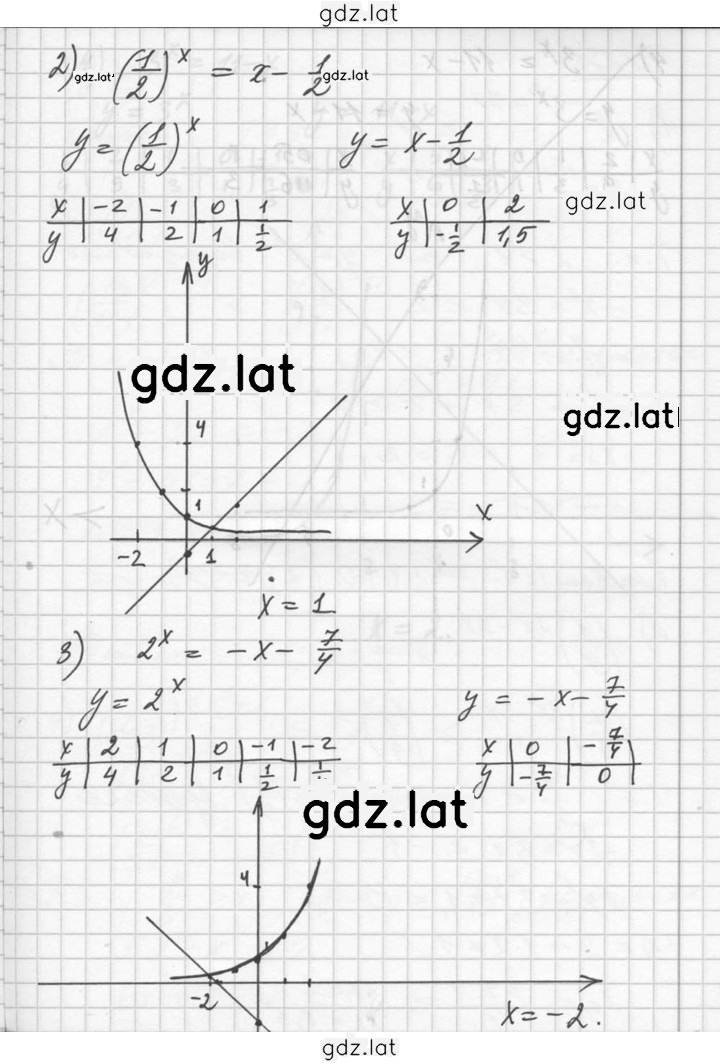 gdz.lat
2) gdz.lat (1/2)^x = x - 1/2 gdz.lat
y = (1/2)^x y = x - 1/2
x | -2 | -1 | 0 | 1
y | 4 | 2 | 1 | 1/2
x | 0 | 2
y | -1/2 | 1,5
gdz.lat
y
gdz.lat
gdz.lat
4
1
x
-2 1
x = 1
3) 2^x = -x - 7/4
y = 2^x y = -x - 7/4
x | 2 | 1 | 0 | -1 | -2
y | 4 | 2 | 1 | 1/2
x | 0 | -7/4
y | -7/4 | 0
gdz.lat
4
1
-2
x = -2.
gdz.lat